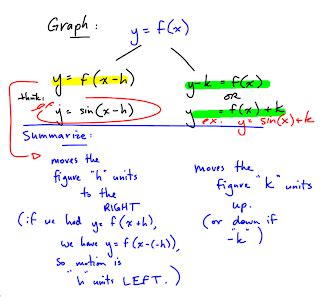 Graph:
y = f(x)
y = f(x-h)
think:
ex:
y = sin(x-h)
y-k = f(x)
OR
y = f(x)+k
ex. y = sin(x)+k
Summarize:
moves the
figure "h" units
to the
RIGHT
(if we had y = f(x+h),
we have y = f(x-(-h)),
so motion is
"h" units LEFT.)
moves the
figure "k" units
up.
(or down if
"-k")